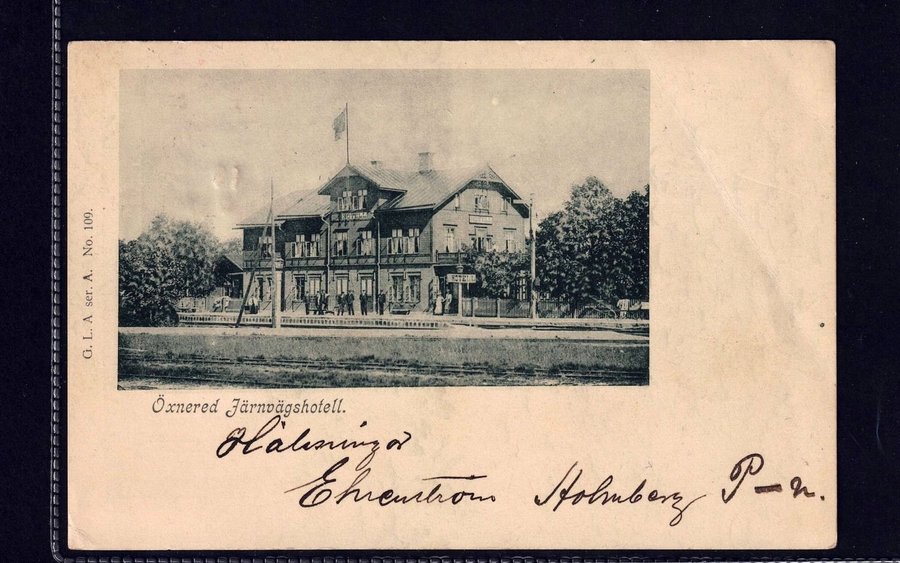 G. L. A ser. A. No. 109.
HOTELL
Öxnered Järnvägshotell.
Hälsningar
Ehrenström Holmberg P-n.